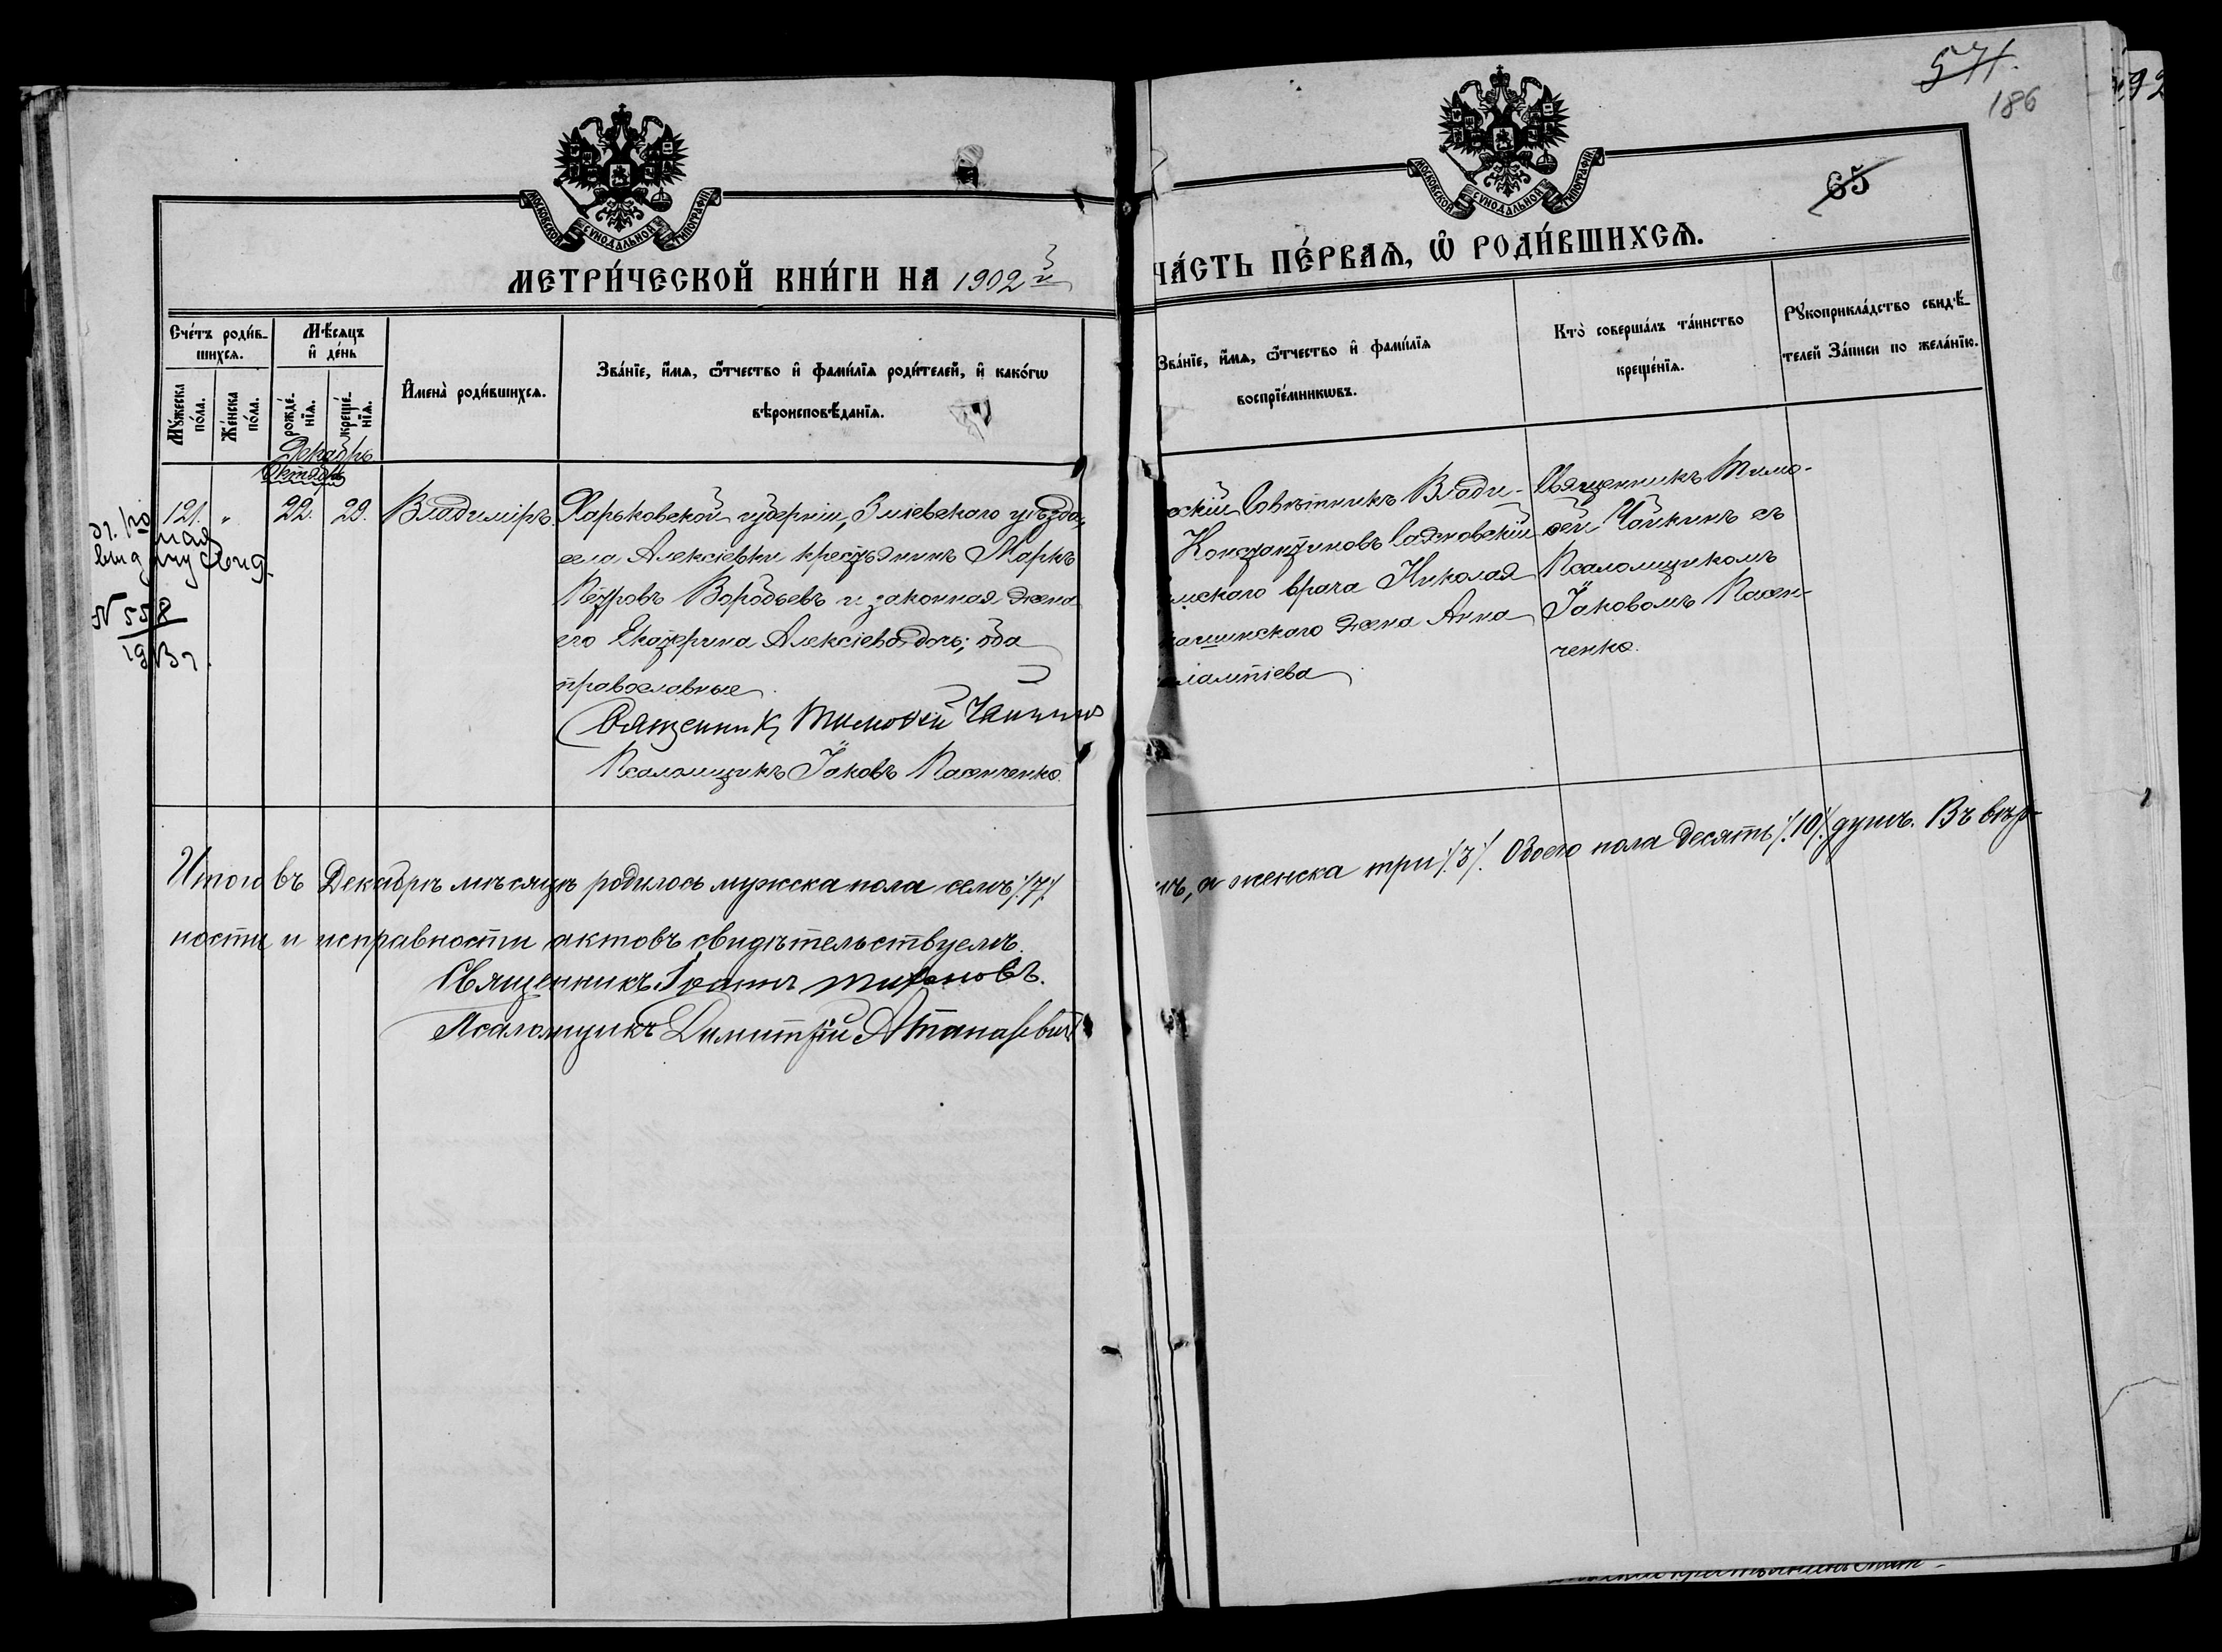 571.
186
92
65
МОСКОВСКОЙ СѴНОДАЛЬНОЙ ТИПОГРАФІИ
МОСКОВСКОЙ СѴНОДАЛЬНОЙ ТИПОГРАФІИ
МЕТРИ́ЧЕСКОЙ КНИ́ГИ НА 1902 й
ЧА́СТЬ ПЕ́РВАѦ, Ѡ҆ РОДИ́ВШИХСѦ.
Сче́тъ роди́в-
шихся.
Мꙋ́жеска по́ла.
Же́нска по́ла.
Мѣ́сяцъ
и҆ де́нь
рожде́-
нїя.
креще́-
нїя.
И҆мена̀ роди́вшихся.
Зва́нїе, и҆́мя, ѻ҆́тчество и҆ фамі́лїя роди́телей, и҆ како́гѡ
вѣроисповѣ́данїя.
Зва́нїе, и҆́мя, ѻ҆́тчество и҆ фами́лїя
воспрїе́мникѡвъ.
Кто̀ соверша́лъ та́инство
креще́нїя.
Рꙋкоприкла́дство свидѣ́-
телей за́писи по жела́нїю.
Декабрь
Октябрь
121. " 22. 29. Владиміръ.
Харьковской губерніи, Зміевскаго уѣзда,
села Алексіевки крестьянинъ Маркъ
Петровъ Воробьевъ и законная жена
его Екатерина Алексіева дочь; оба
православные.
Священникъ Тимоѳей Чайкинъ
Псаломщикъ Іаковъ Пасенченко.
скій Совѣтникъ Влади-
Константиновъ Садковскій
мскаго врача Николая
жена Анна
лампіева
Священникъ Тимо-
ѳей Чайкинъ съ
Псаломщикомъ
Іаковомъ Пасен-
ченко.
выдачу свид.
№ 558
1913 г.
Итого въ Декабрѣ мѣсяцѣ родилось мужска пола семь /.7./
мъ, а женска три /.3./. Обоего пола десять /.10./ душъ. Въ вѣр-
ности и исправности актовъ свидѣтельствуемъ.
Священникъ Іоаннъ Тихоновъ.
Псаломщикъ Димитрій Атанасевичъ